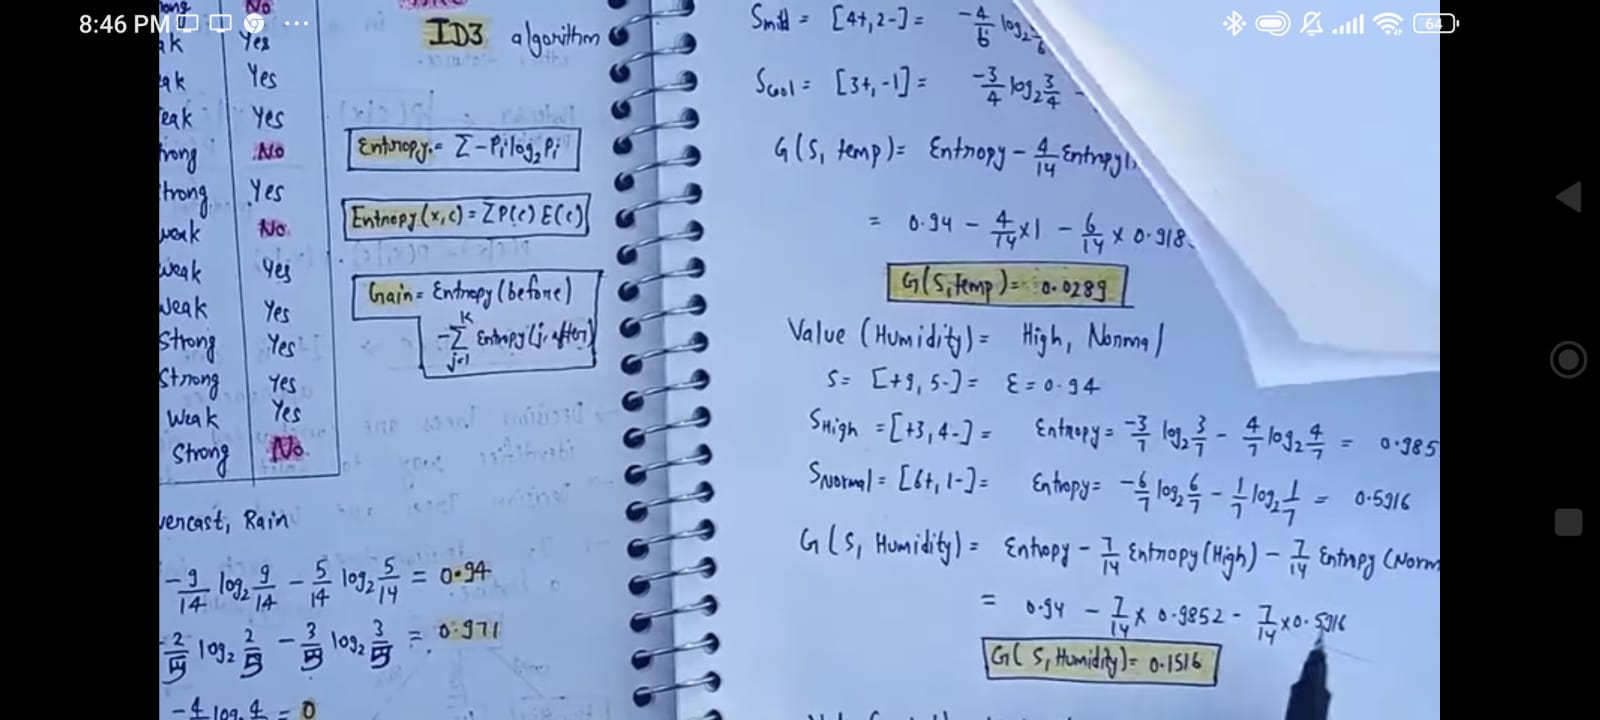 8:46 PM
64
No
ak Yes
ak Yes
eak Yes
rong No
trong Yes
weak No
Weak Yes
Weak Yes
Strong Yes
Strong Yes
Weak Yes
Strong No
ID3 algorithm
Entropy = Σ -Pi log₂ Pi
Entropy (x, c) = Σ P(c) E(c)
Gain = Entropy (before)
- Σ Entropy (j, after)
K
j=1
vercast, Rain
-9/14 log₂ 9/14 - 5/14 log₂ 5/14 = 0.94
-2/5 log₂ 2/5 - 3/5 log₂ 3/5 = 0.971
-4 log₂ 4 = 0
Smild = [4+, 2-] = -4/6 log₂
Scool = [3+, -1] = -3/4 log₂ 3/4 -
G(S, temp) = Entropy - 4/14 Entropy(
= 0.94 - 4/14 x 1 - 6/14 x 0.918
G(S, temp) = 0.0289
Value (Humidity) = High, Normal
S = [+9, 5-] = ε = 0.94
SHigh = [+3, 4-] = Entropy = -3/7 log₂ 3/7 - 4/7 log₂ 4/7 = 0.985
SNormal = [6+, 1-] = Entropy = -6/7 log₂ 6/7 - 1/7 log₂ 1/7 = 0.5916
G(S, Humidity) = Entropy - 7/14 Entropy (High) - 7/14 Entropy (Norm
= 0.94 - 7/14 x 0.9852 - 7/14 x 0.5916
G(S, Humidity) = 0.1516